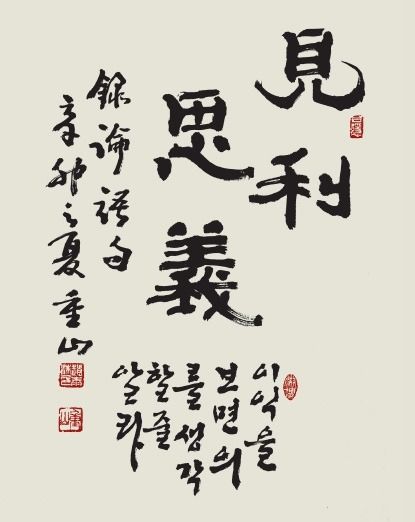 見利
思義
錄論語句
辛卯之夏 重山
이익을
보면 의
를 생각
할 줄
알라